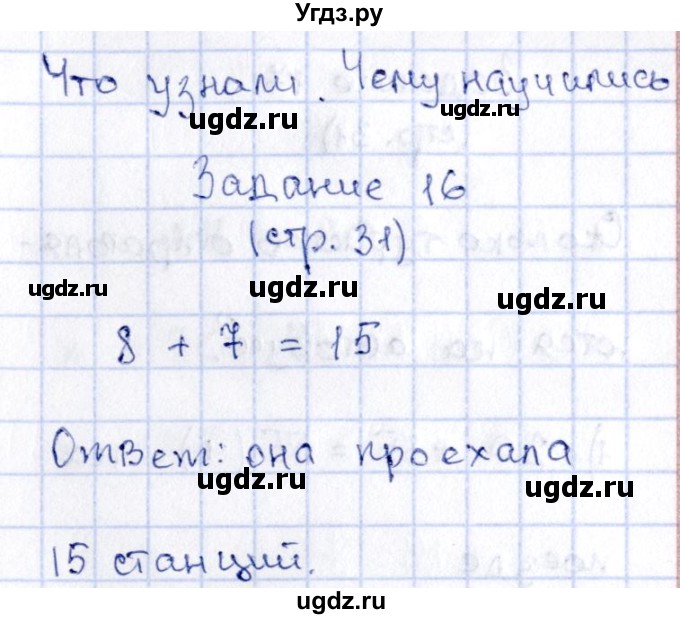 Угдз.ру
Что узнали. Чему научились
ugdz.ru ugdz.ru
Задание 16
(стр. 31)
ugdz.ru ugdz.ru ugdz.ru
8 + 7 = 15
Ответ: она проехала
ugdz.ru ugdz.ru
15 станций.
ugdz.ru